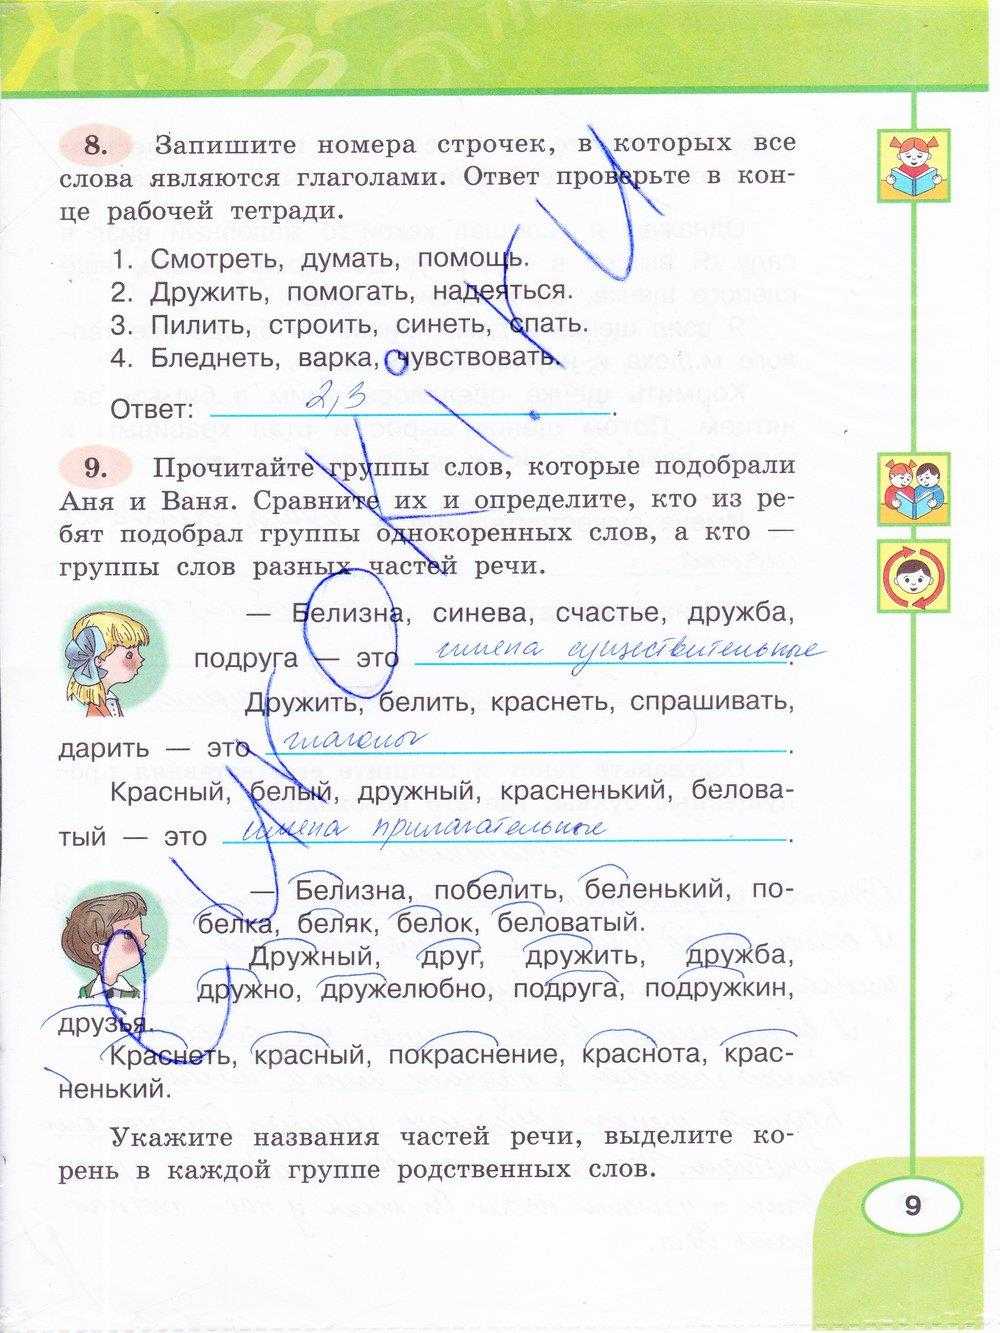 8. Запишите номера строчек, в которых все
слова являются глаголами. Ответ проверьте в кон-
це рабочей тетради.
1. Смотреть, думать, помощь.
2. Дружить, помогать, надеяться.
3. Пилить, строить, синеть, спать.
4. Бледнеть, варка, чувствовать.
Ответ: 2,3.
9. Прочитайте группы слов, которые подобрали
Аня и Ваня. Сравните их и определите, кто из ре-
бят подобрал группы однокоренных слов, а кто —
группы слов разных частей речи.
— Белизна, синева, счастье, дружба,
подруга — это имена существительные.
Дружить, белить, краснеть, спрашивать,
дарить — это глаголы.
Красный, белый, дружный, красненький, белова-
тый — это имена прилагательные.
— Белизна, побелить, беленький, по-
белка, беляк, белок, беловатый.
Дружный, друг, дружить, дружба,
дружно, дружелюбно, подруга, подружкин,
друзья.
Краснеть, красный, покраснение, краснота, крас-
ненький.
Укажите названия частей речи, выделите ко-
рень в каждой группе родственных слов.
9